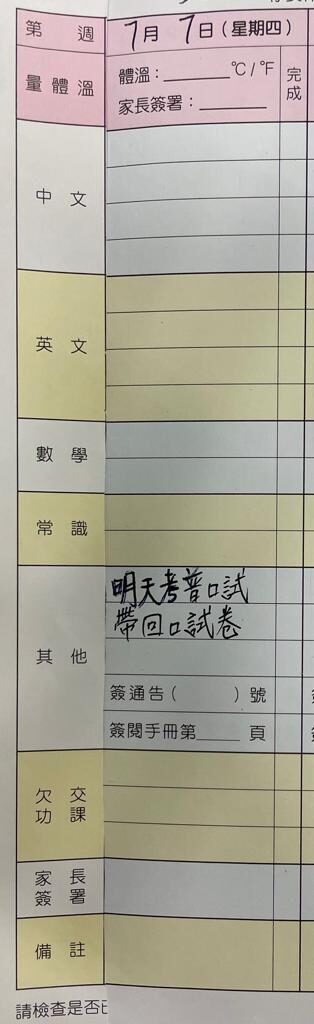 第 週
7月 7日(星期四)
量體溫
體溫：______°C/°F
完成
家長簽署：______
中文
英文
數學
常識
其他
明天考普口試
帶回口試卷
簽通告( )號
簽閱手冊第____頁
欠交功課
家長簽署
備註
請檢查是否已